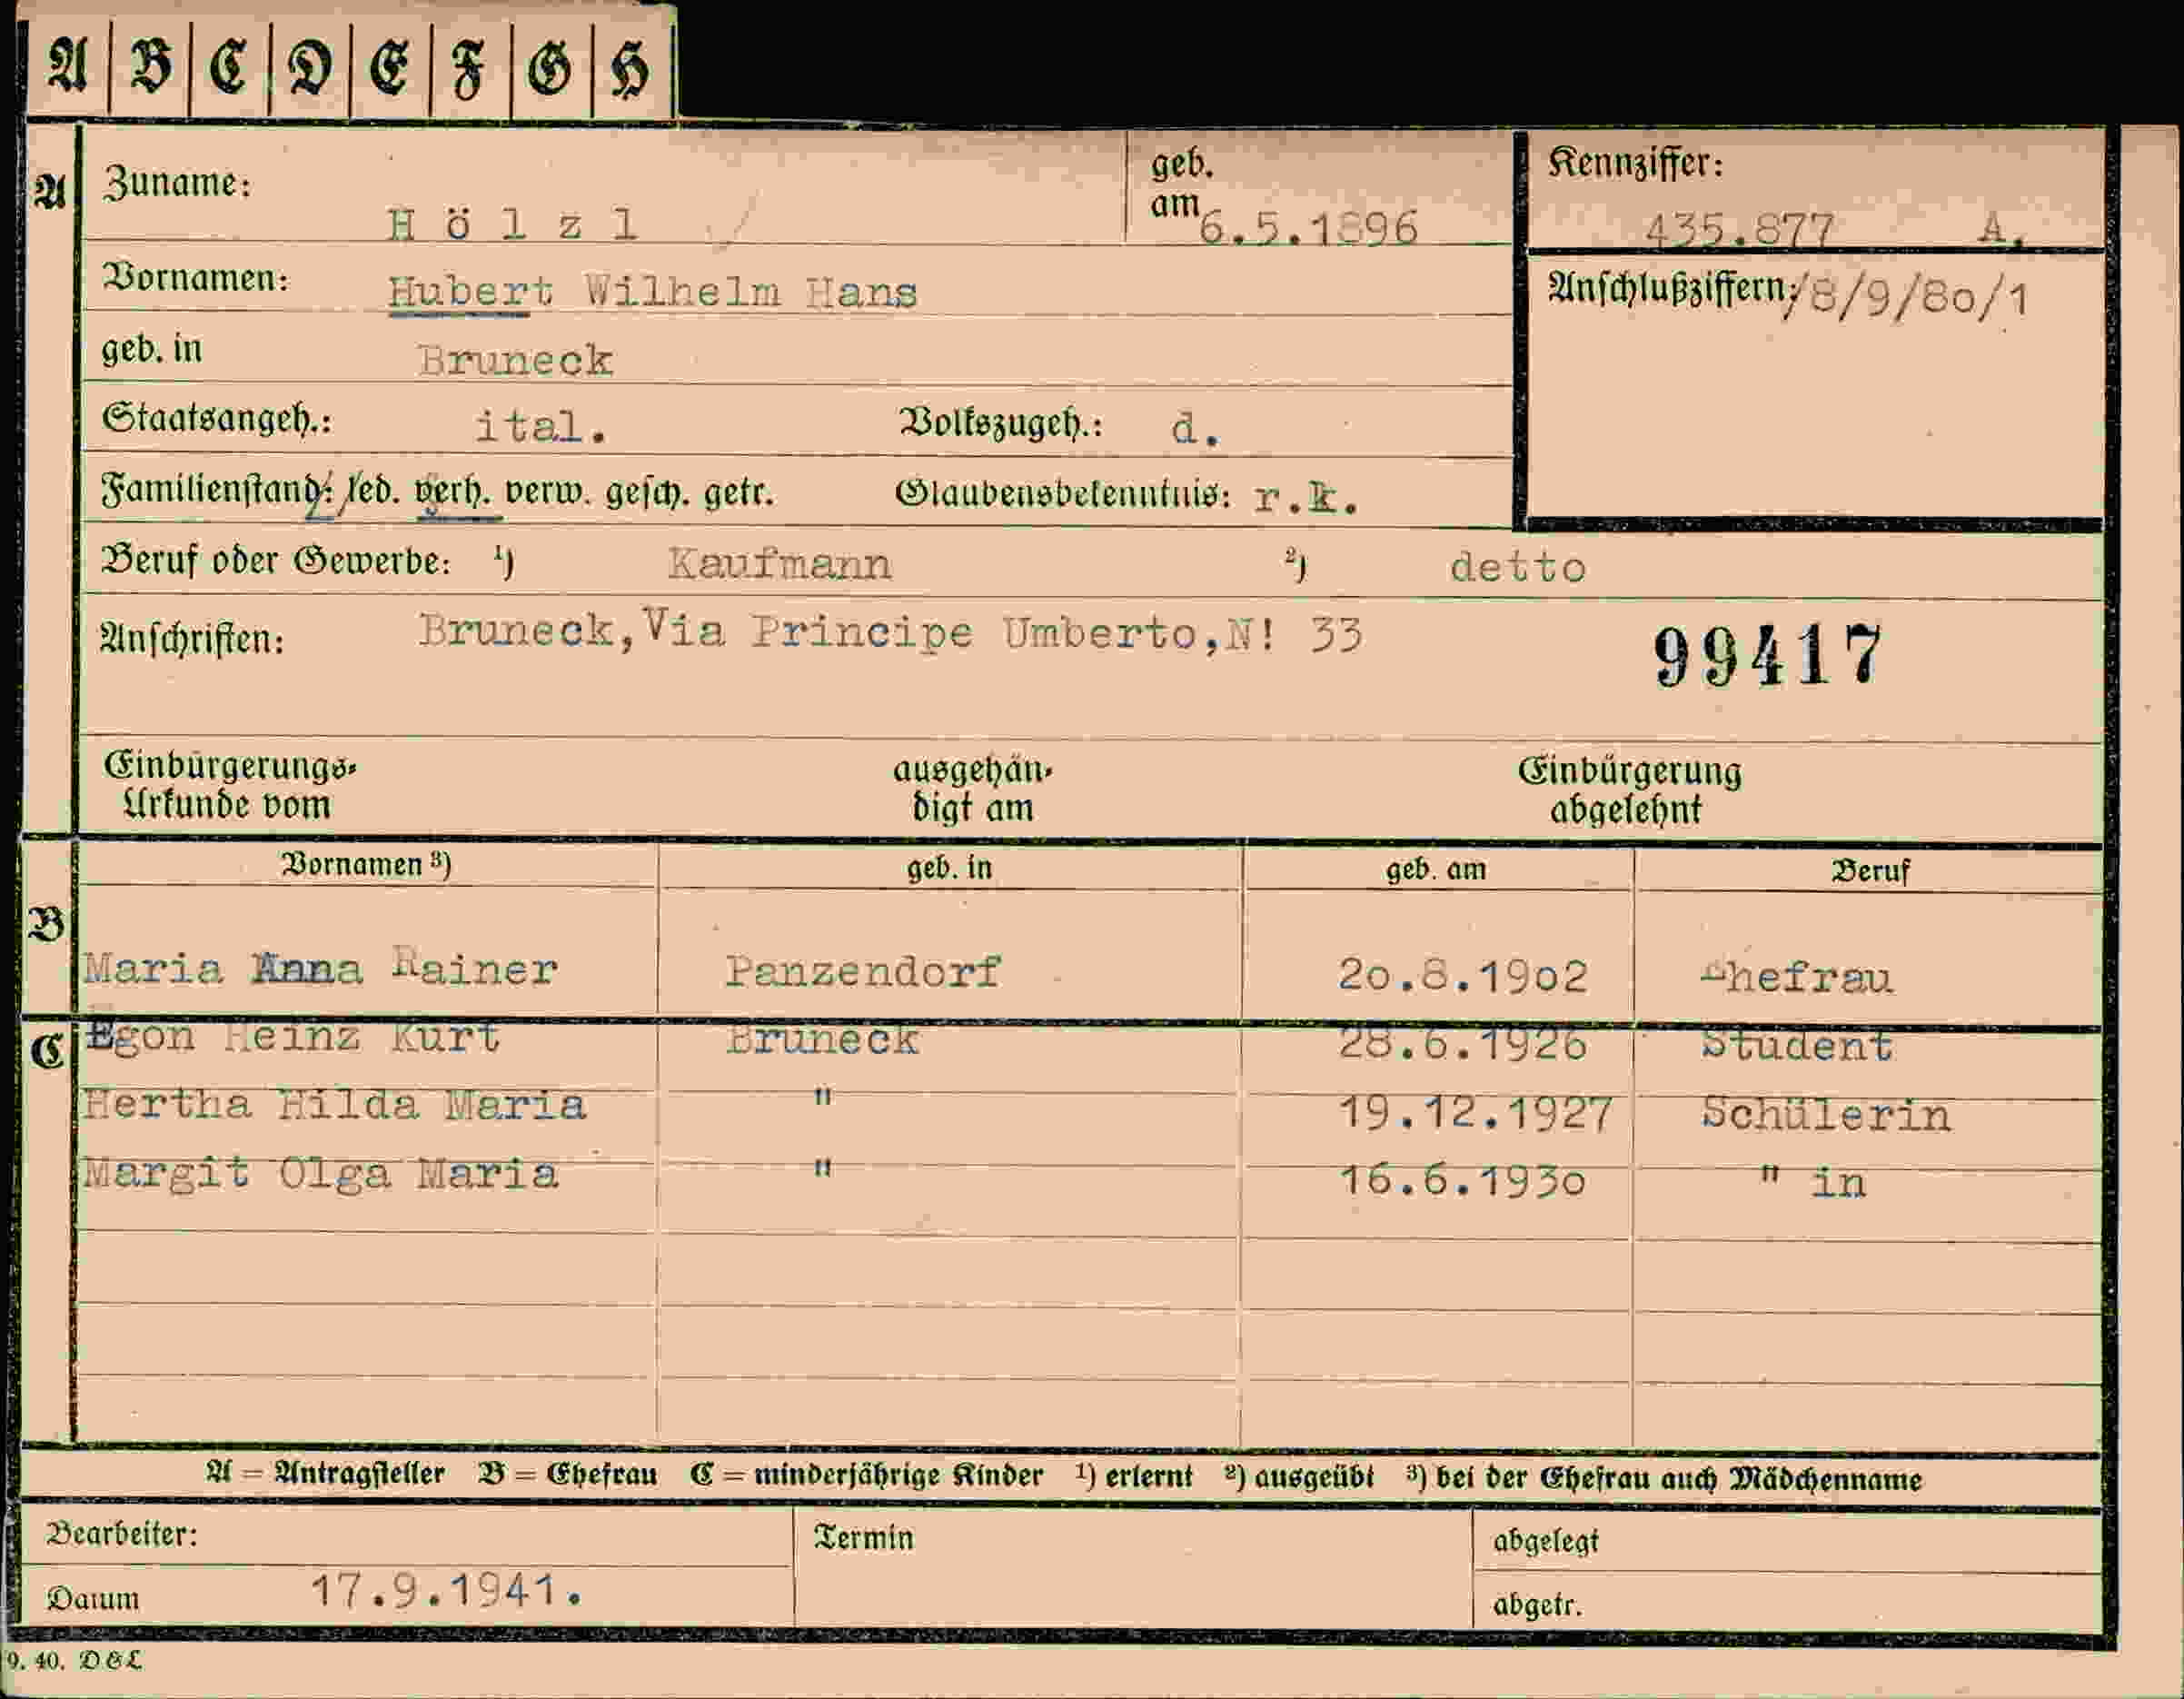 A B C D E F G H
A Zuname: Hölzl geb. am 6.5.1896 Kennziffer: 435.877 A.
Vornamen: Hubert Wilhelm Hans Anschlußziffern: /8/9/80/1
geb. in Bruneck
Staatsangeh.: ital. Volkszugeh.: d.
Familienstand: led. verh. verw. gesch. getr. Glaubensbekenntnis: r.k.
Beruf oder Gewerbe: ¹) Kaufmann ²) detto
Anschriften: Bruneck,Via Principe Umberto,N! 33 99417
Einbürgerungs- ausgehän- Einbürgerung
Urkunde vom digt am abgelehnt
Vornamen ³) geb. in geb. am Beruf
B
Maria Anna Rainer Panzendorf 20.8.1902 Ehefrau
C Egon Heinz Kurt Bruneck 28.6.1926 Student
Hertha Hilda Maria " 19.12.1927 Schülerin
Margit Olga Maria " 16.6.1930 " in
A = Antragsteller B = Ehefrau C = minderjährige Kinder ¹) erlernt ²) ausgeübt ³) bei der Ehefrau auch Mädchenname
Bearbeiter: Termin abgelegt
Datum 17.9.1941. abgetr.
9. 40. D&L